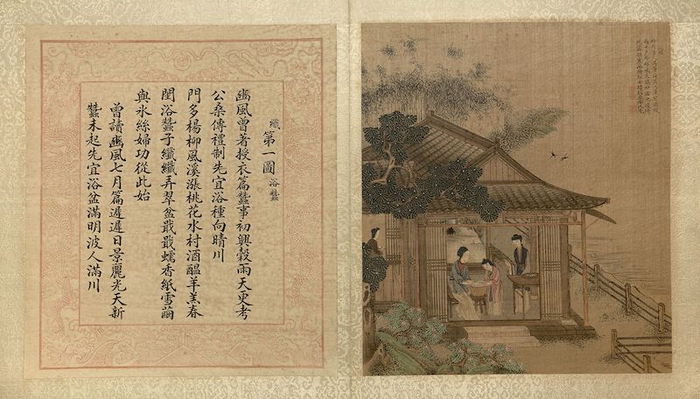 織第一圖 浴蠶
豳風曾著授衣篇蠶事初興穀雨天更考
公桑傳禮制先宜浴種向晴川
門多楊柳風溪漲桃花水村酒醞羊羔春
閨浴蠶子纖纖弄翠盆戢戢蠕香紙雪繭
與氷絲婦功從此始
曾讀豳風七月篇遲遲日景麗光天新
蠶未起先宜浴盆滿明波人滿川